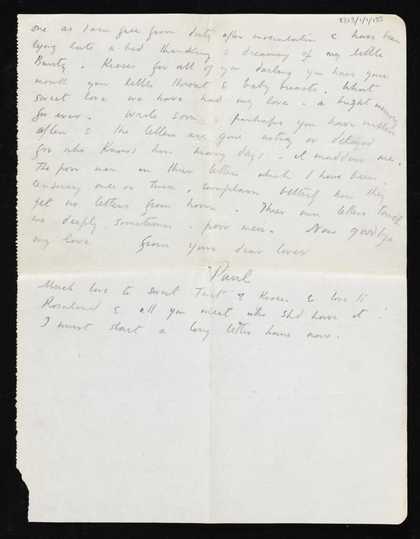 one as I am free from duty after inoculation & have been
lying on a bed thinking & dreaming of my little
Bunty. Kisses for all of you darling you have your
mouth your little throat & baby breasts. What
sweet love we have had my love. a bright memory
for ever. Write soon & perhaps you have written
often & the letters are gone astray or delayed
for who knows how many days. It maddens me.
The poor men in their letters which I have been
censoring once or twice, complain bitterly how they
get no letters from home. Their own letters touch
me deeply sometimes. poor men. Now goodbye
my love from your dear lover
Paul
Much love to sweet & Kisses & love to
Rosalind & all you meet who shd have it.
I must start a long letter home now.